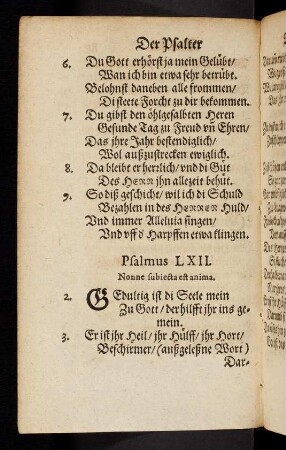 Der Psalter
6. Du Gott erhörst ja mein Gelübt/
Wan ich bin etwa sehr betrübt.
Belohnst daneben alle frommen/
Di steete Forcht zu dir bekommen.
7. Du gibst den öhlgesalbten Heren
Gesunde Tag zu Freud vñ Ehren/
Das jhre Jahr bestendiglich/
Wol außzustrecken ewiglich.
8. Da bleibt er herlich/ vnd di Güt
Des HERRN jhn allezeit behüt.
9. So diß geschicht/ wil ich di Schuld
Bezahlen in des HERREN Huld/
Vnd immer Alleluia singen/
Vnd vff d Harpffen etwa klingen.
Psalmus LXII.
Nonne subiecta est anima.
2. GEdultig ist di Seele mein
Zu Gott/ der hilfft jhr ins ge-
mein.
3. Er ist jhr Heil/ jhr Hülff/ jhr Hort/
Beschirmer/ (außgeleßne Wort)
Dar-